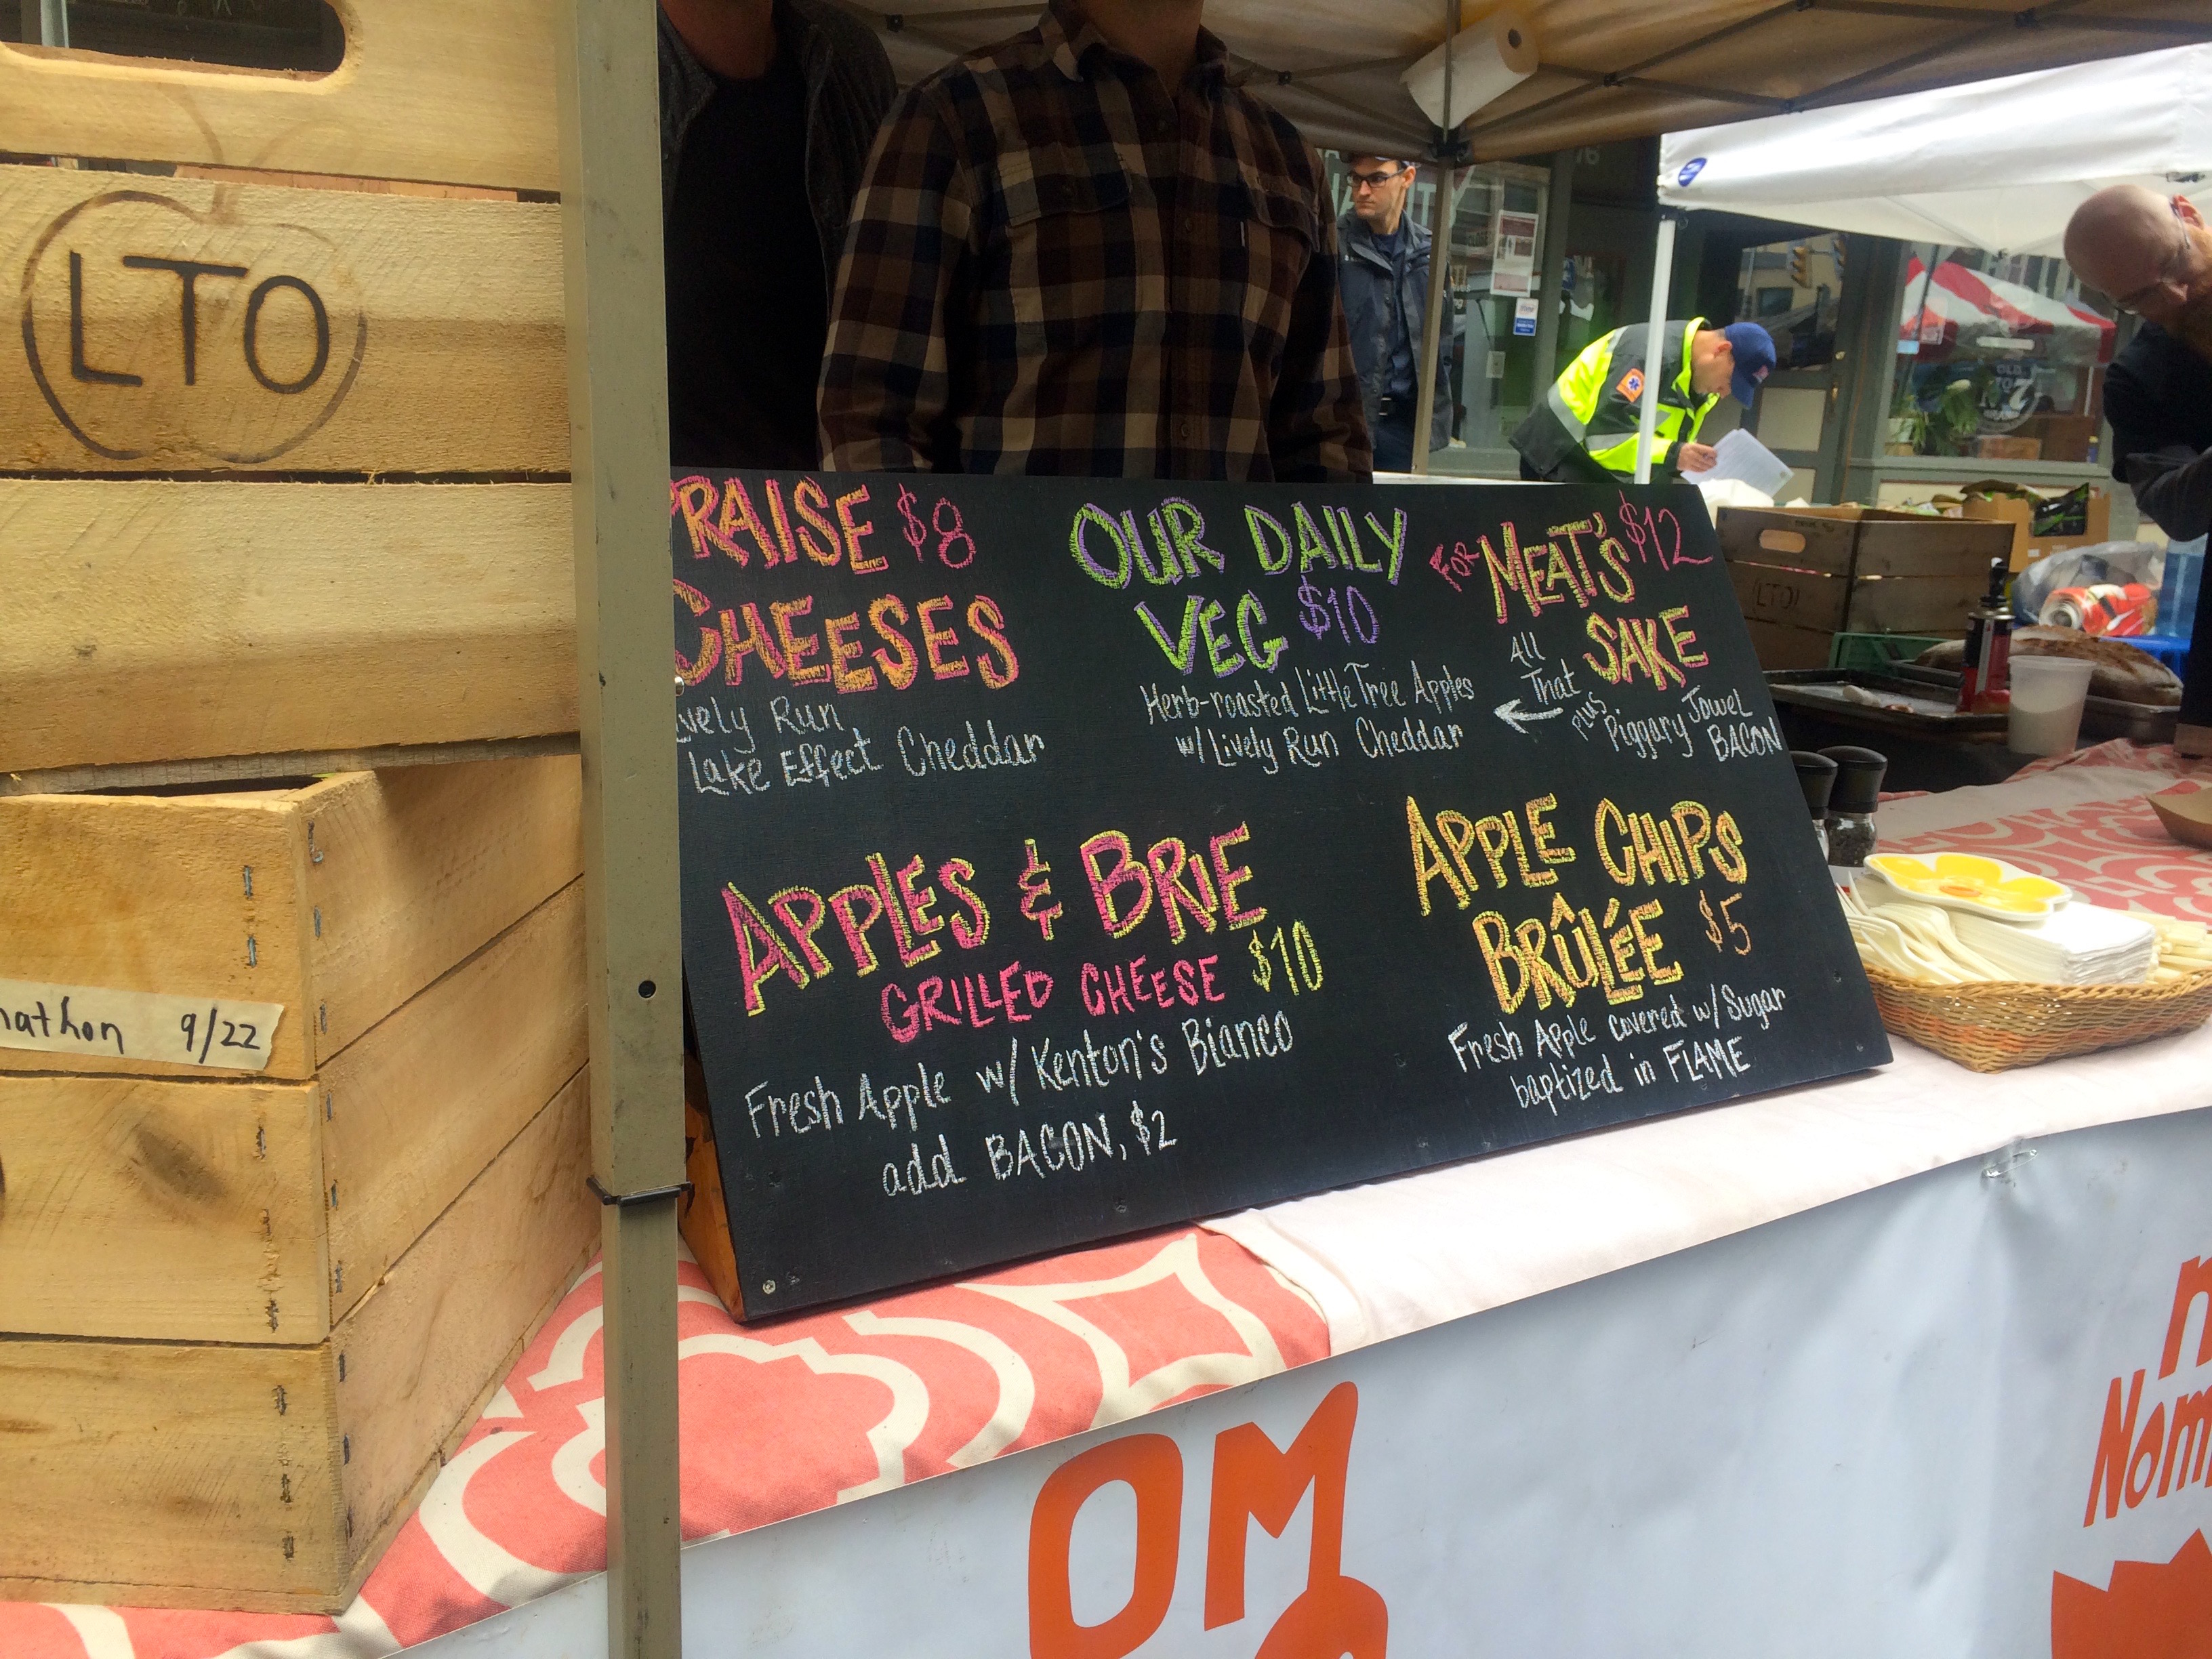 LTO
nathon 9/22
PRAISE $8
CHEESES
Lively Run
Lake Effect Cheddar
OUR DAILY
VEG $10
Herb-roasted Little Tree Apples
w/ Lively Run Cheddar
FOR MEAT'S $12
SAKE
All
That
PLUS Piggary Jowel
BACON
APPLES & BRIE
GRILLED CHEESE $10
Fresh Apple w/ Kenton's Bianco
add BACON, $2
APPLE CHIPS
BRÛLÉE $5
Fresh Apple covered w/ Sugar
baptized in FLAME
(LTO)
OM
n
Nom